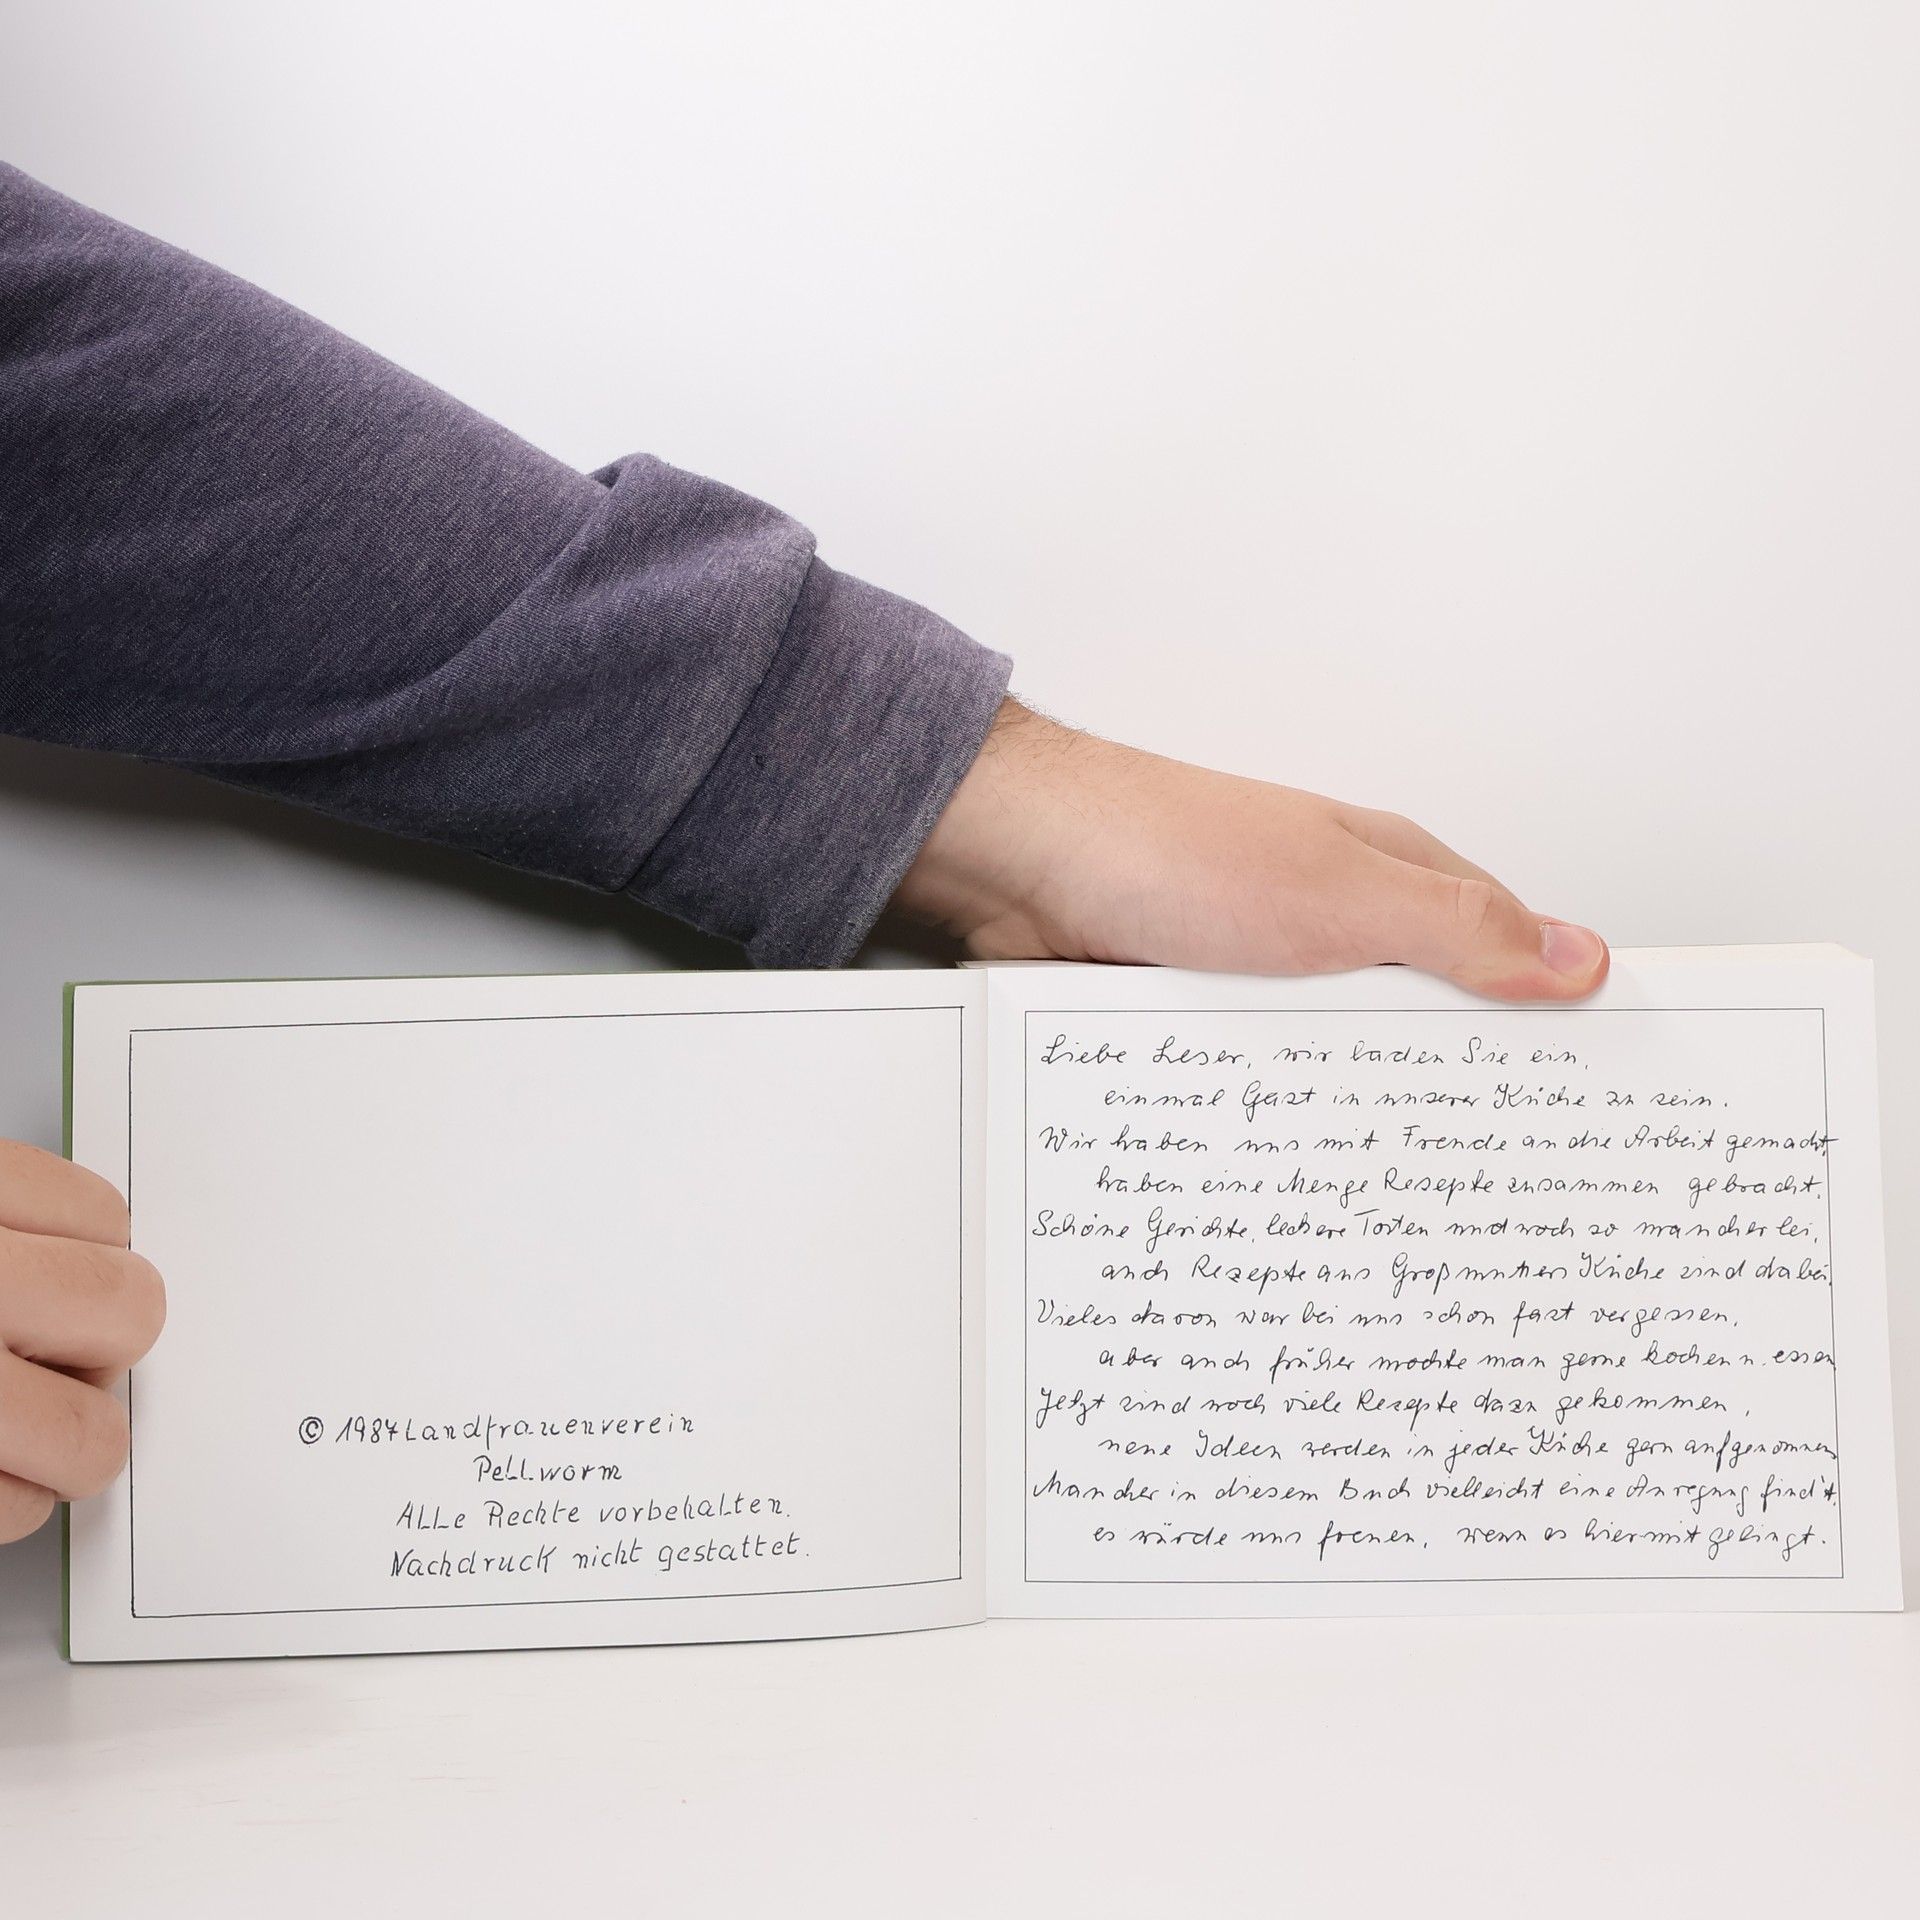 © 1987 Landfrauenverein
Pellworm
Alle Rechte vorbehalten.
Nachdruck nicht gestattet.
Liebe Leser, wir laden Sie ein,
einmal Gast in unserer Küche zu sein.
Wir haben uns mit Freude an die Arbeit gemacht,
haben eine Menge Rezepte zusammen gebracht.
Schöne Gerichte, leckere Torten und noch so mancherlei,
auch Rezepte aus Großmutters Küche sind dabei.
Vieles davon war bei uns schon fast vergessen,
aber auch früher mochte man gerne kochen u. essen
Jetzt sind noch viele Rezepte dazu gekommen,
neue Ideen werden in jeder Küche gern aufgenommen
Mancher in diesem Buch vielleicht eine Anregung find't,
es würde uns freuen, wenn es hiermit gelingt.